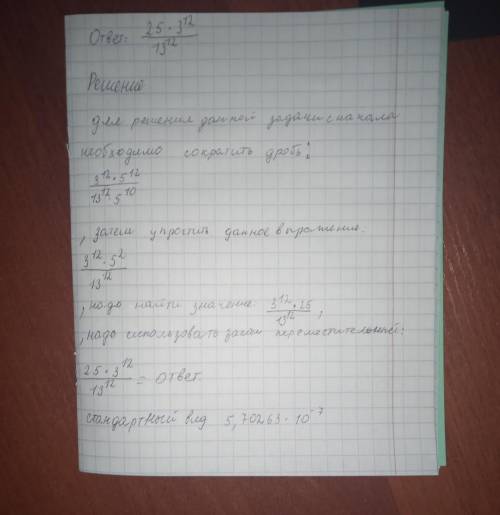 Ответ: 25 · 3¹² / 13¹²
Решение
для решения данной задачи сначала
необходимо сократить дробь:
3¹² · 5¹² / 13¹² · 5¹⁰
, затем упростить данное выражение.
3¹² · 5² / 13¹²
, надо найти значение 3¹² · 25 / 13¹²,
, надо использовать закон переместительный:
25 · 3¹² / 13¹² = ответ.
стандартный вид 5,70263 · 10⁻⁷